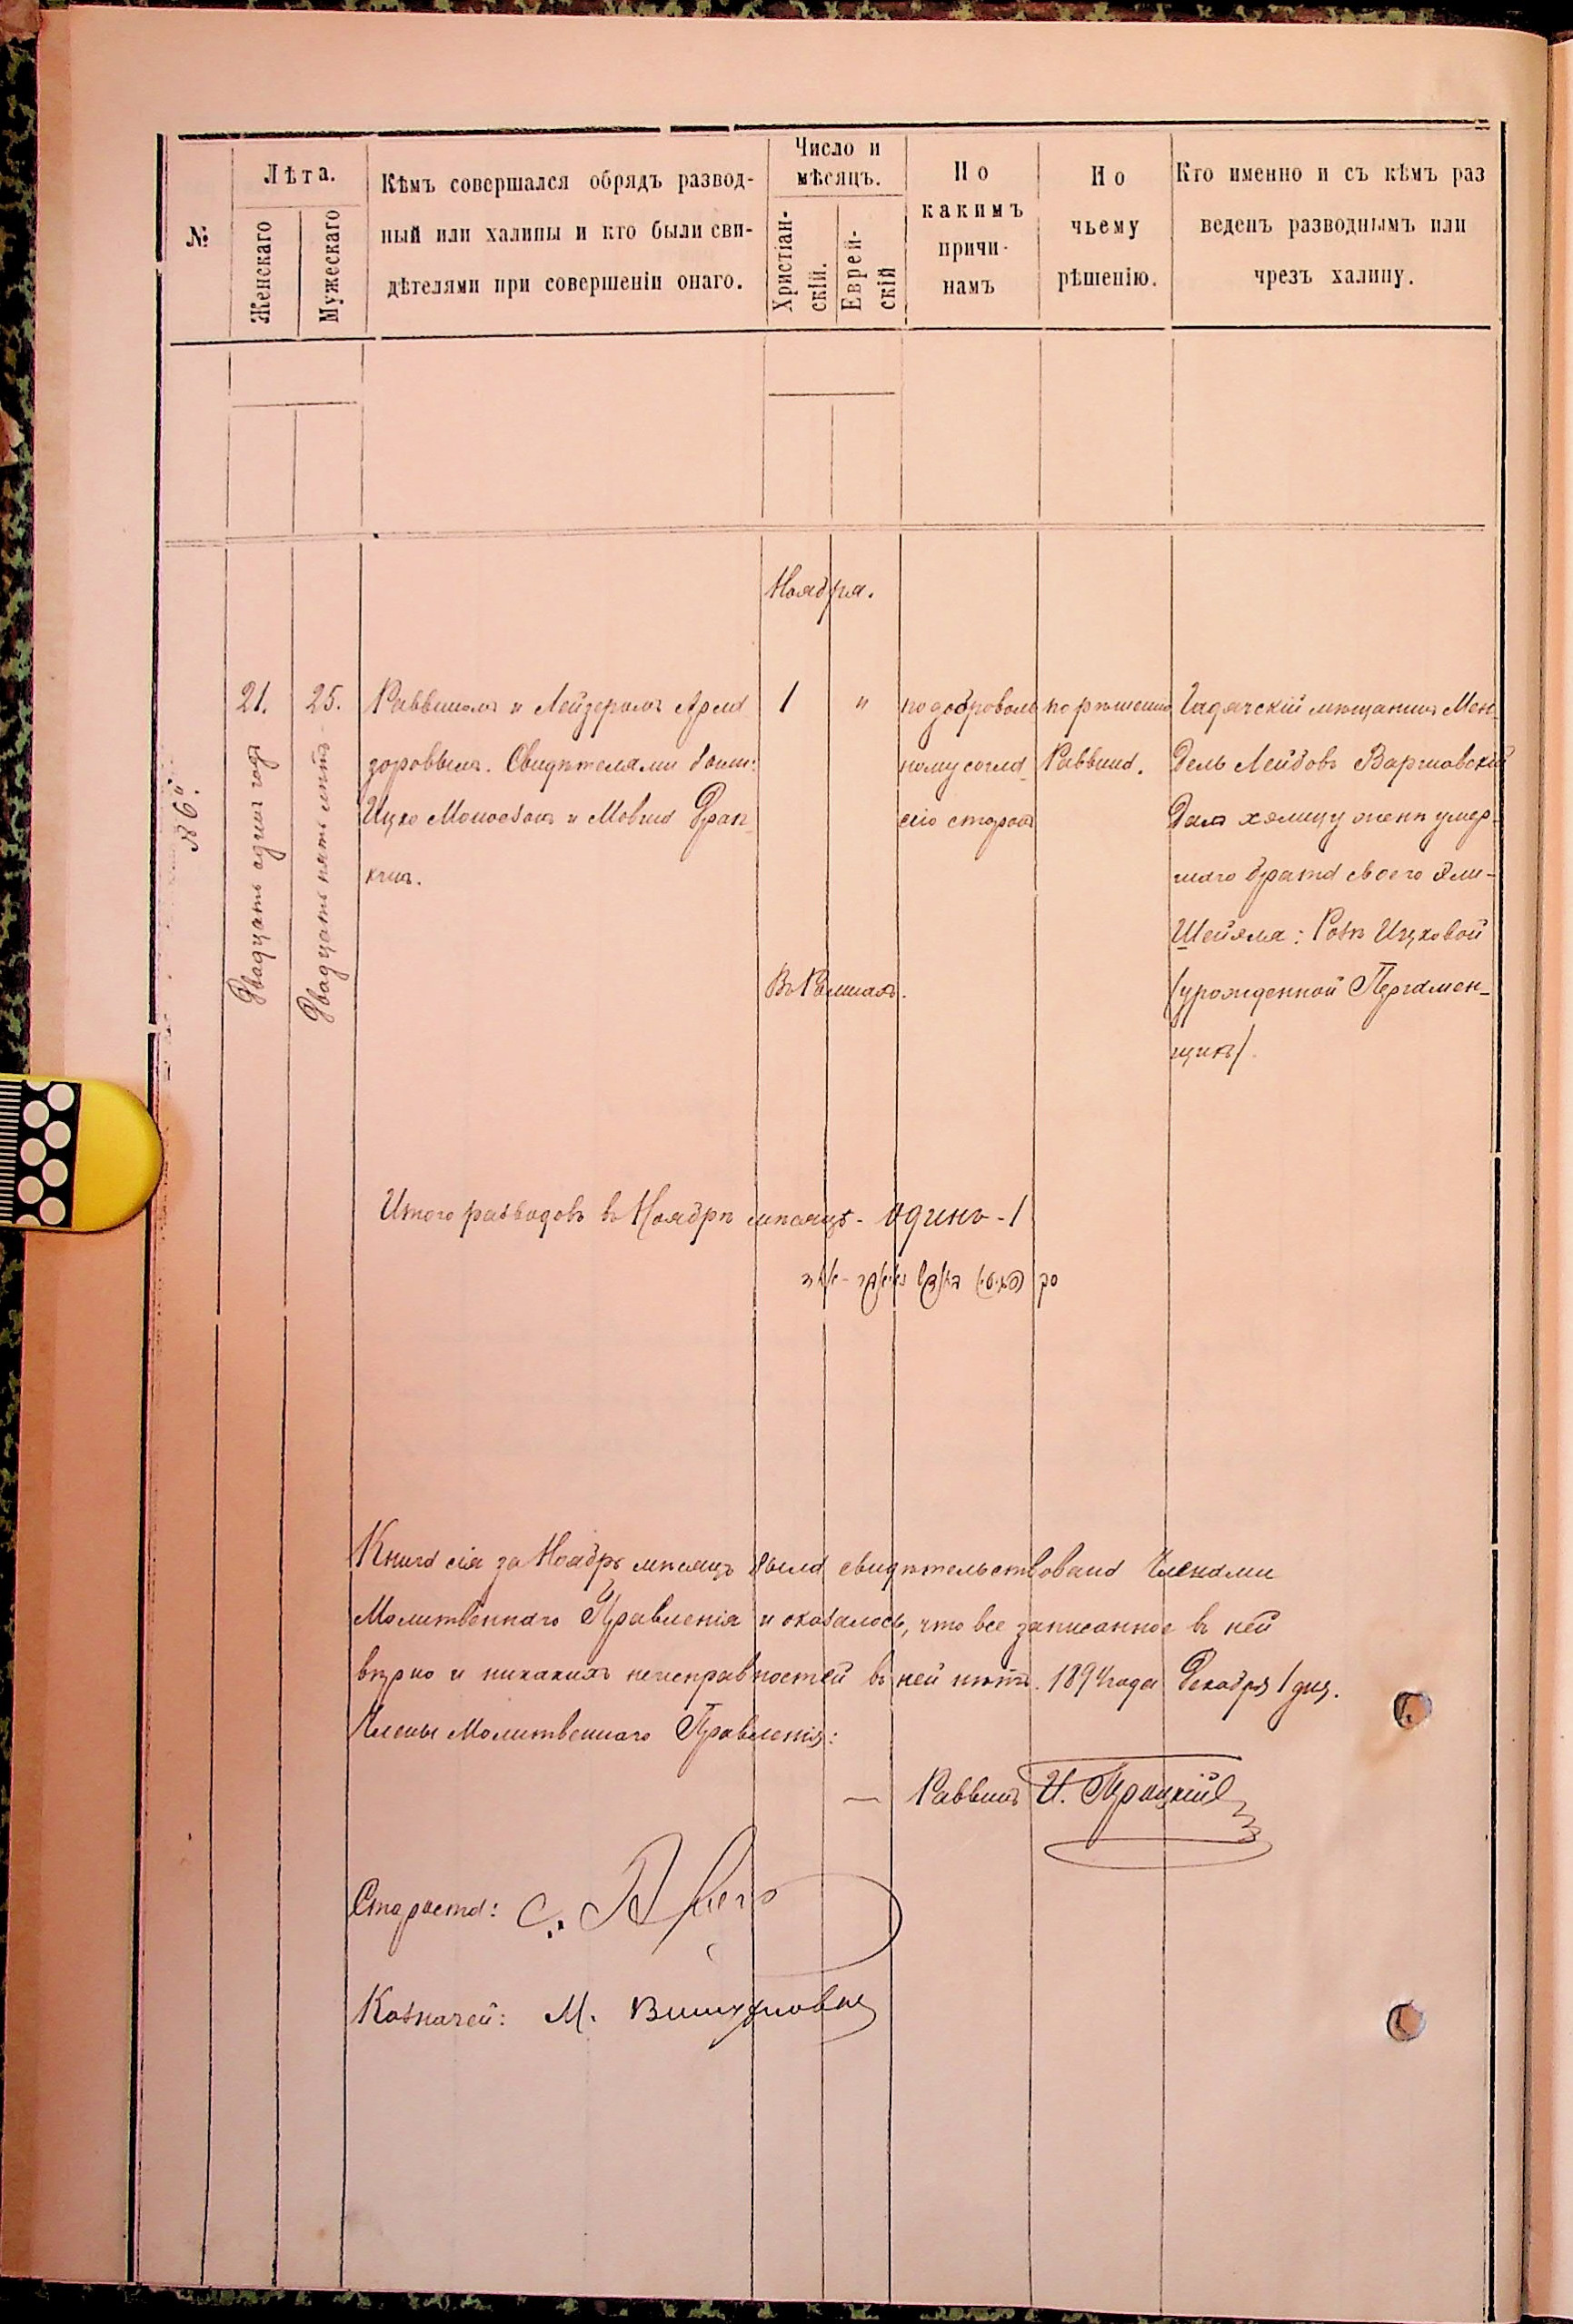 №
Лѣта.
Женскаго
Мужескаго
Кѣмъ совершался обрядъ развод-
ный или халицы и кто были сви-
дѣтелями при совершеніи онаго.
Число и
мѣсяцъ.
Христіан-
скій.
Еврей-
скій
По
какимъ
причи-
намъ
По
чьему
рѣшенію.
Кто именно и съ кѣмъ раз
веденъ разводнымъ или
чрезъ халицу.
Ноября.
№ 6".
21.
Двадцать одинъ годъ
25.
Двадцать пять лѣтъ
Раввиномъ и Лейзеромъ
Свидѣтелями были:
Ицко и Мовша Дран-
кинъ.
1
"
Въ Ромнахъ.
по доброволь
ному согла-
сію сторонъ
по рѣшенію
Раввина.
Гадячскій мѣщанинъ Мен-
дель Лейбовъ Варшавскій
Далъ халицу женѣ умер-
шаго брата своего
Розѣ Ицковой
(урожденной Пергамен-
щикъ).
Итого разводовъ въ Ноябрѣ мѣсяцѣ - одинъ - 1
Книга сія за Ноябрь мѣсяцъ была свидѣтельствована Членами
Молитвеннаго Правленія и оказалось, что все записанное въ ней
вѣрно и никакихъ неисправностей въ ней нѣтъ. 1894 года Декабря 1 дня.
Члены Молитвеннаго Правленія:
Раввинъ И.
Староста: С.
Казначей: М.